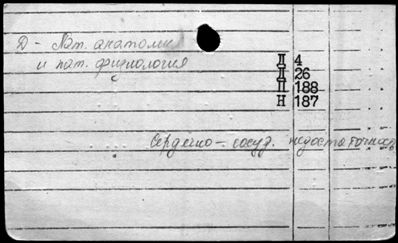 Д – Пат. анатомия
и пат. физиология
Д 4
Д 26
П 188
Н 187
Сердечно – сосуд. недостаточност